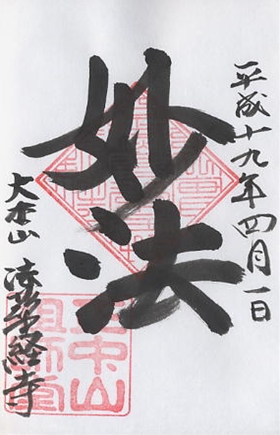 平成十九年四月一日
妙法
大本山 法華経寺
正中山